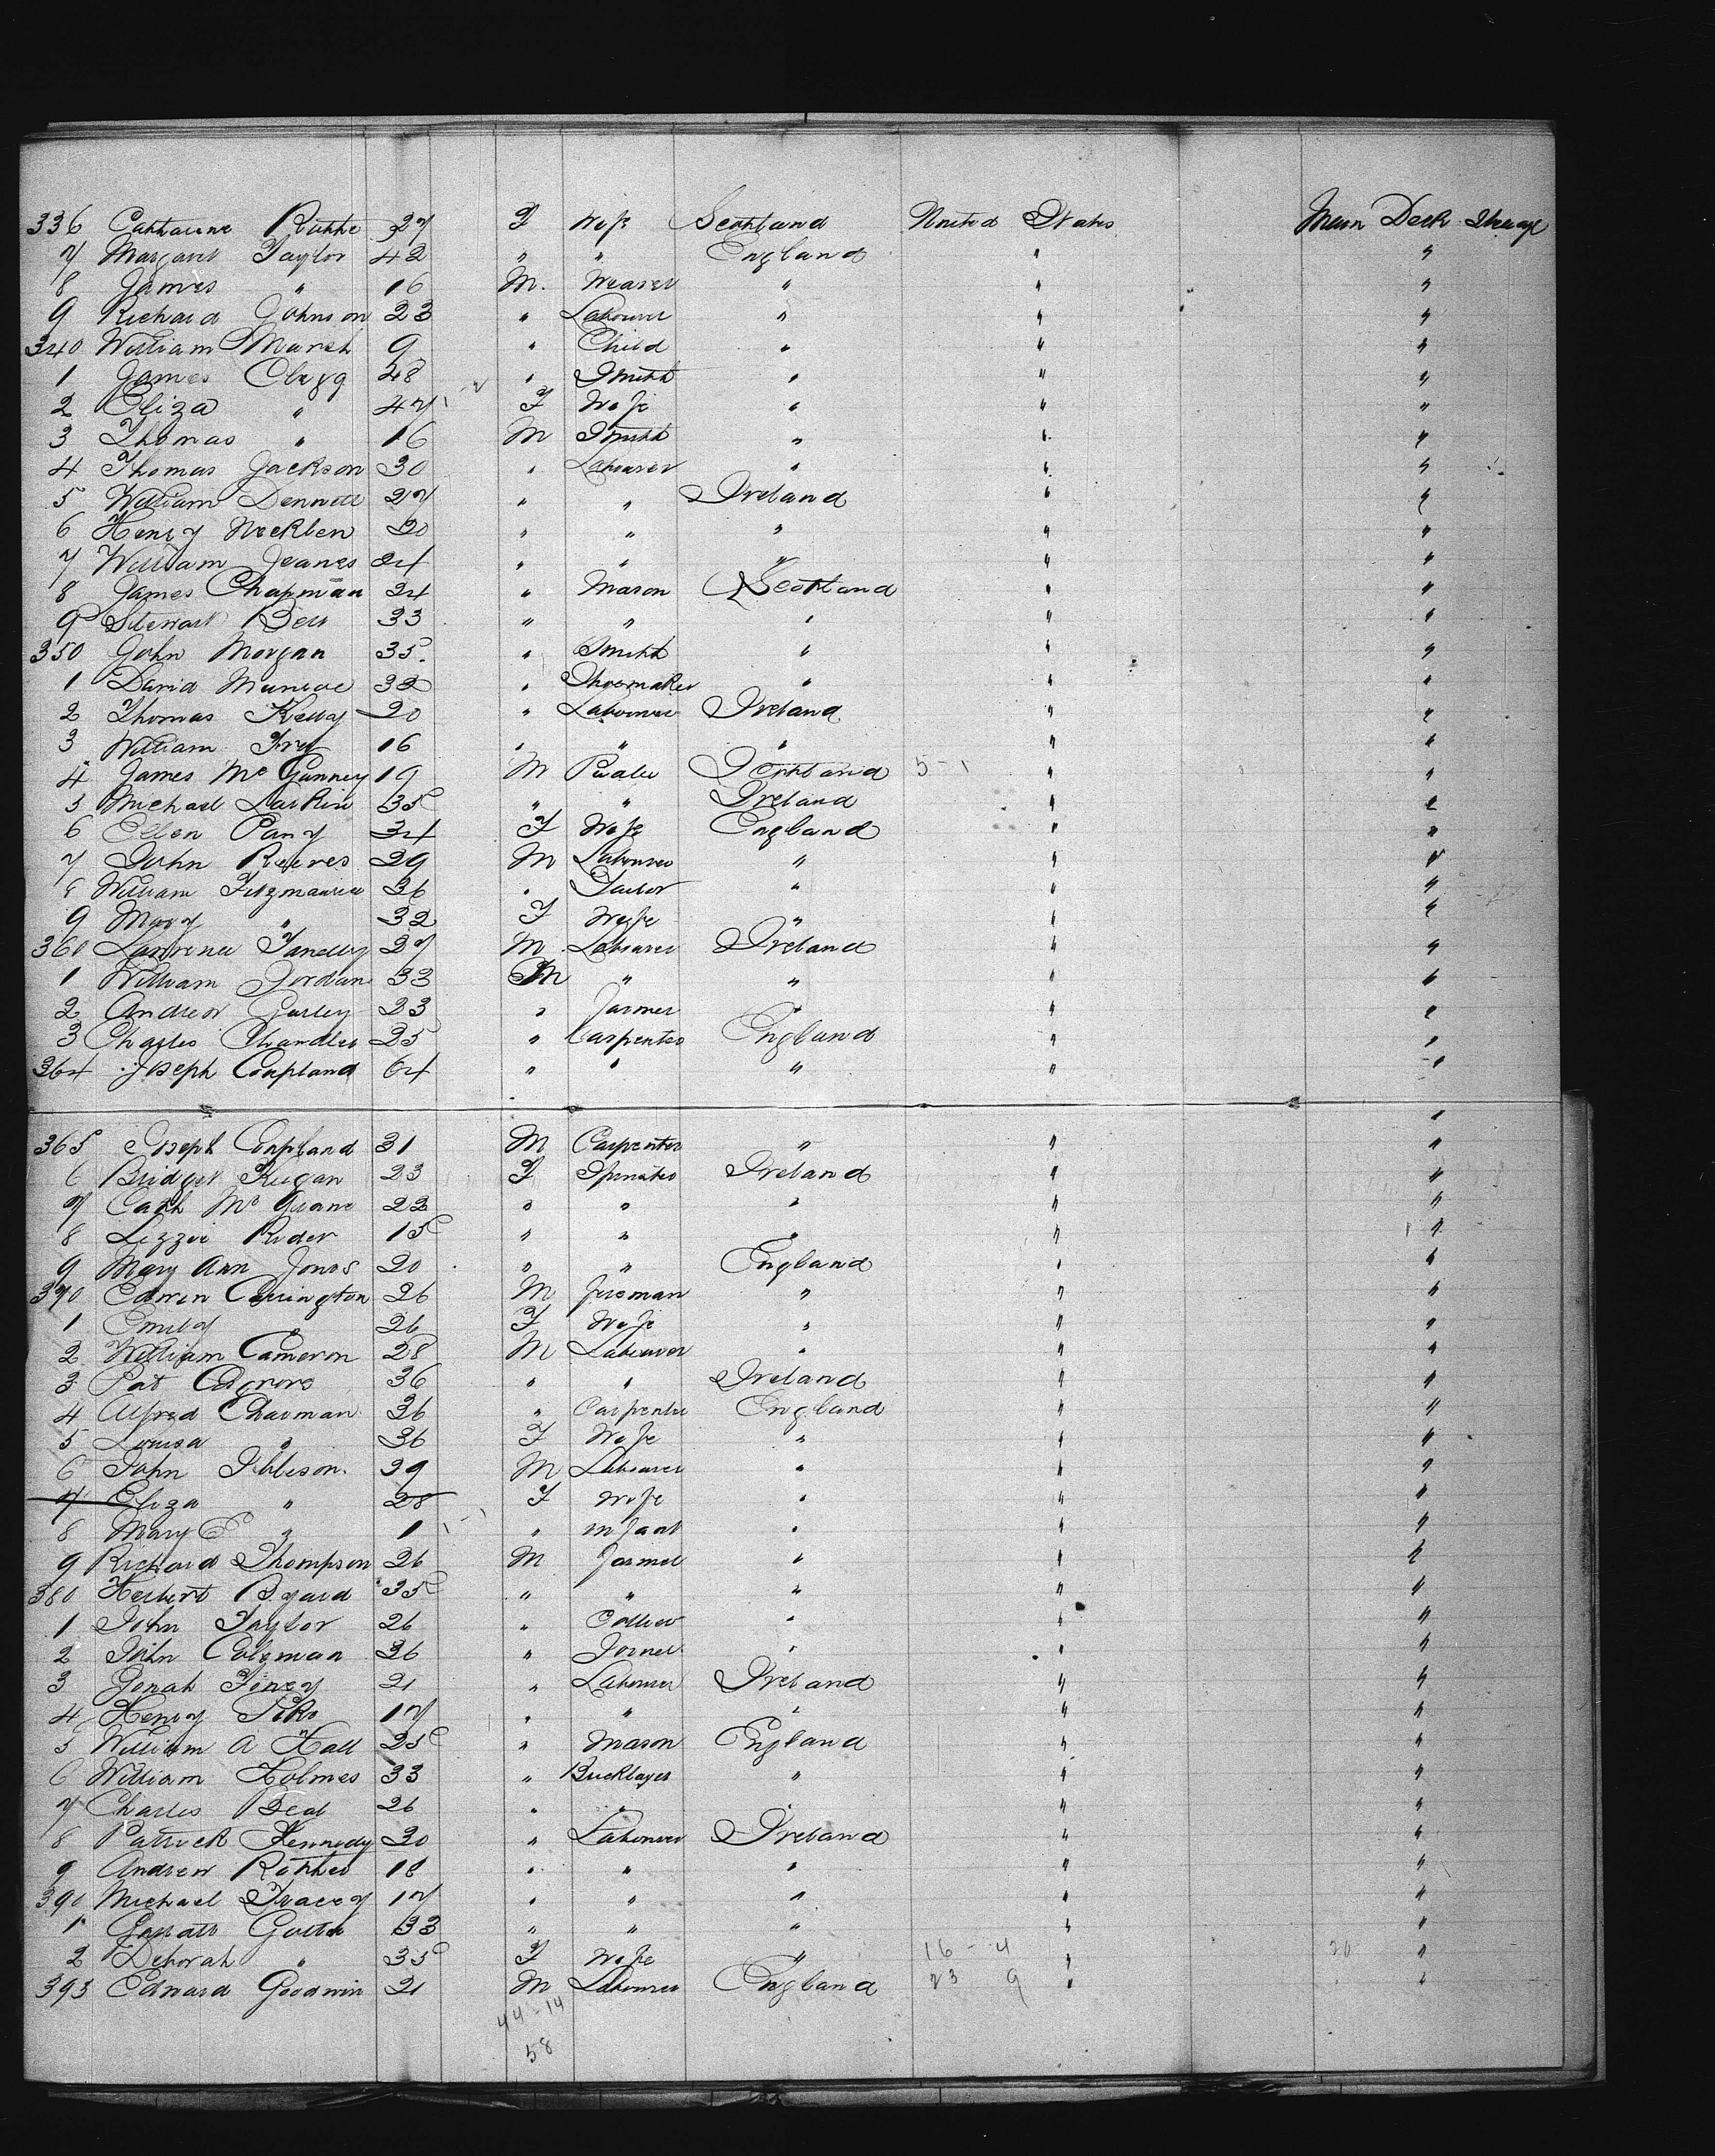 336 Catharine 27 F Wife Scotland United States Main Deck Steerage
7 Margaret Taylor 42 " " England " "
8 James " 16 M. Weaver " " "
9 Richard Johnson 23 " Labourer " " "
340 William Marsh 9 " Child " " "
1 James Clegg 48 " Smith " " "
2 Eliza " 47 F Wife " " "
3 Thomas " 16 M Smith " " "
4 Thomas Jackson 30 " Labourer " " "
5 William Dennett 27 " " Ireland " "
6 Henry 20 " " " " "
7 William Jeanes 24 " " " " "
8 James Chapman 24 " Mason Scotland " "
9 Stewart Bell 33 " " " " "
350 John Morgan 35. " Smith " " "
1 David Munroe 32 " Shoemaker " " "
2 Thomas Kelly 20 " Labourer Ireland " "
3 William 16 " " " " "
4 James Mc Gunney 19 M Scotland 5-1 " "
5 Michael Larkin 35 " " Ireland " "
6 Ellen 34 F Wife England " "
7 John Reeves 29 M Labourer " " "
8 William Fitzmaurice 36 " Tailor " " "
9 Mary " 32 F Wife " " "
360 Lawrence 27 M. Labourer Ireland " "
1 William Jordan 33 M " " " "
2 Andrew 23 " Farmer " " "
3 Charles Chandler 25 " Carpenter England " "
364 Joseph Coupland 64 " " " " "
"
365 Joseph Coupland 31 M Carpenter " " "
6 Bridget Keegan 23 F Spinster Ireland " "
7 Cath Mc Guane 22 " " " " "
8 Lizzie Rider 15 " " " " "
9 Mary Ann Jones 20 " " England " "
370 Edwin Carrington 26 M Fireman " " "
1 Emily " 26 F Wife " " "
2 William Cameron 28 M Labourer " " "
3 Pat 36 " " Ireland " "
4 Alfred Charman 36 " Carpenter England " "
5 Louisa " 36 F Wife " " "
6 John Ibbison. 39 M Labourer " " "
7 Eliza " 28 F Wife " " "
8 Mary E " 1 " infant " " "
9 Richard Thompson 26 M Farmer " " "
380 Herbert Byard 35 " " " " "
1 John Taylor 26 " Collier " " "
2 John Coleman 36 " Joiner " " "
3 Jonah 21 " Labourer Ireland " "
4 Henry 17 " " " " "
5 William A Hall 25 " Mason England " "
6 William Holmes 33 " Bricklayer " " "
7 Charles 26 " " " " "
8 Patrick Kennedy 30 " Labourer Ireland " "
9 Andrew 18 " " " " "
390 Michael Tracey 17 " " " " "
1 33 " " " " "
2 Deborah " 35 F Wife " 16 - 4 " 20 "
393 Edward Goodwin 21 M Labourer England 23 9 " "
44-14
58